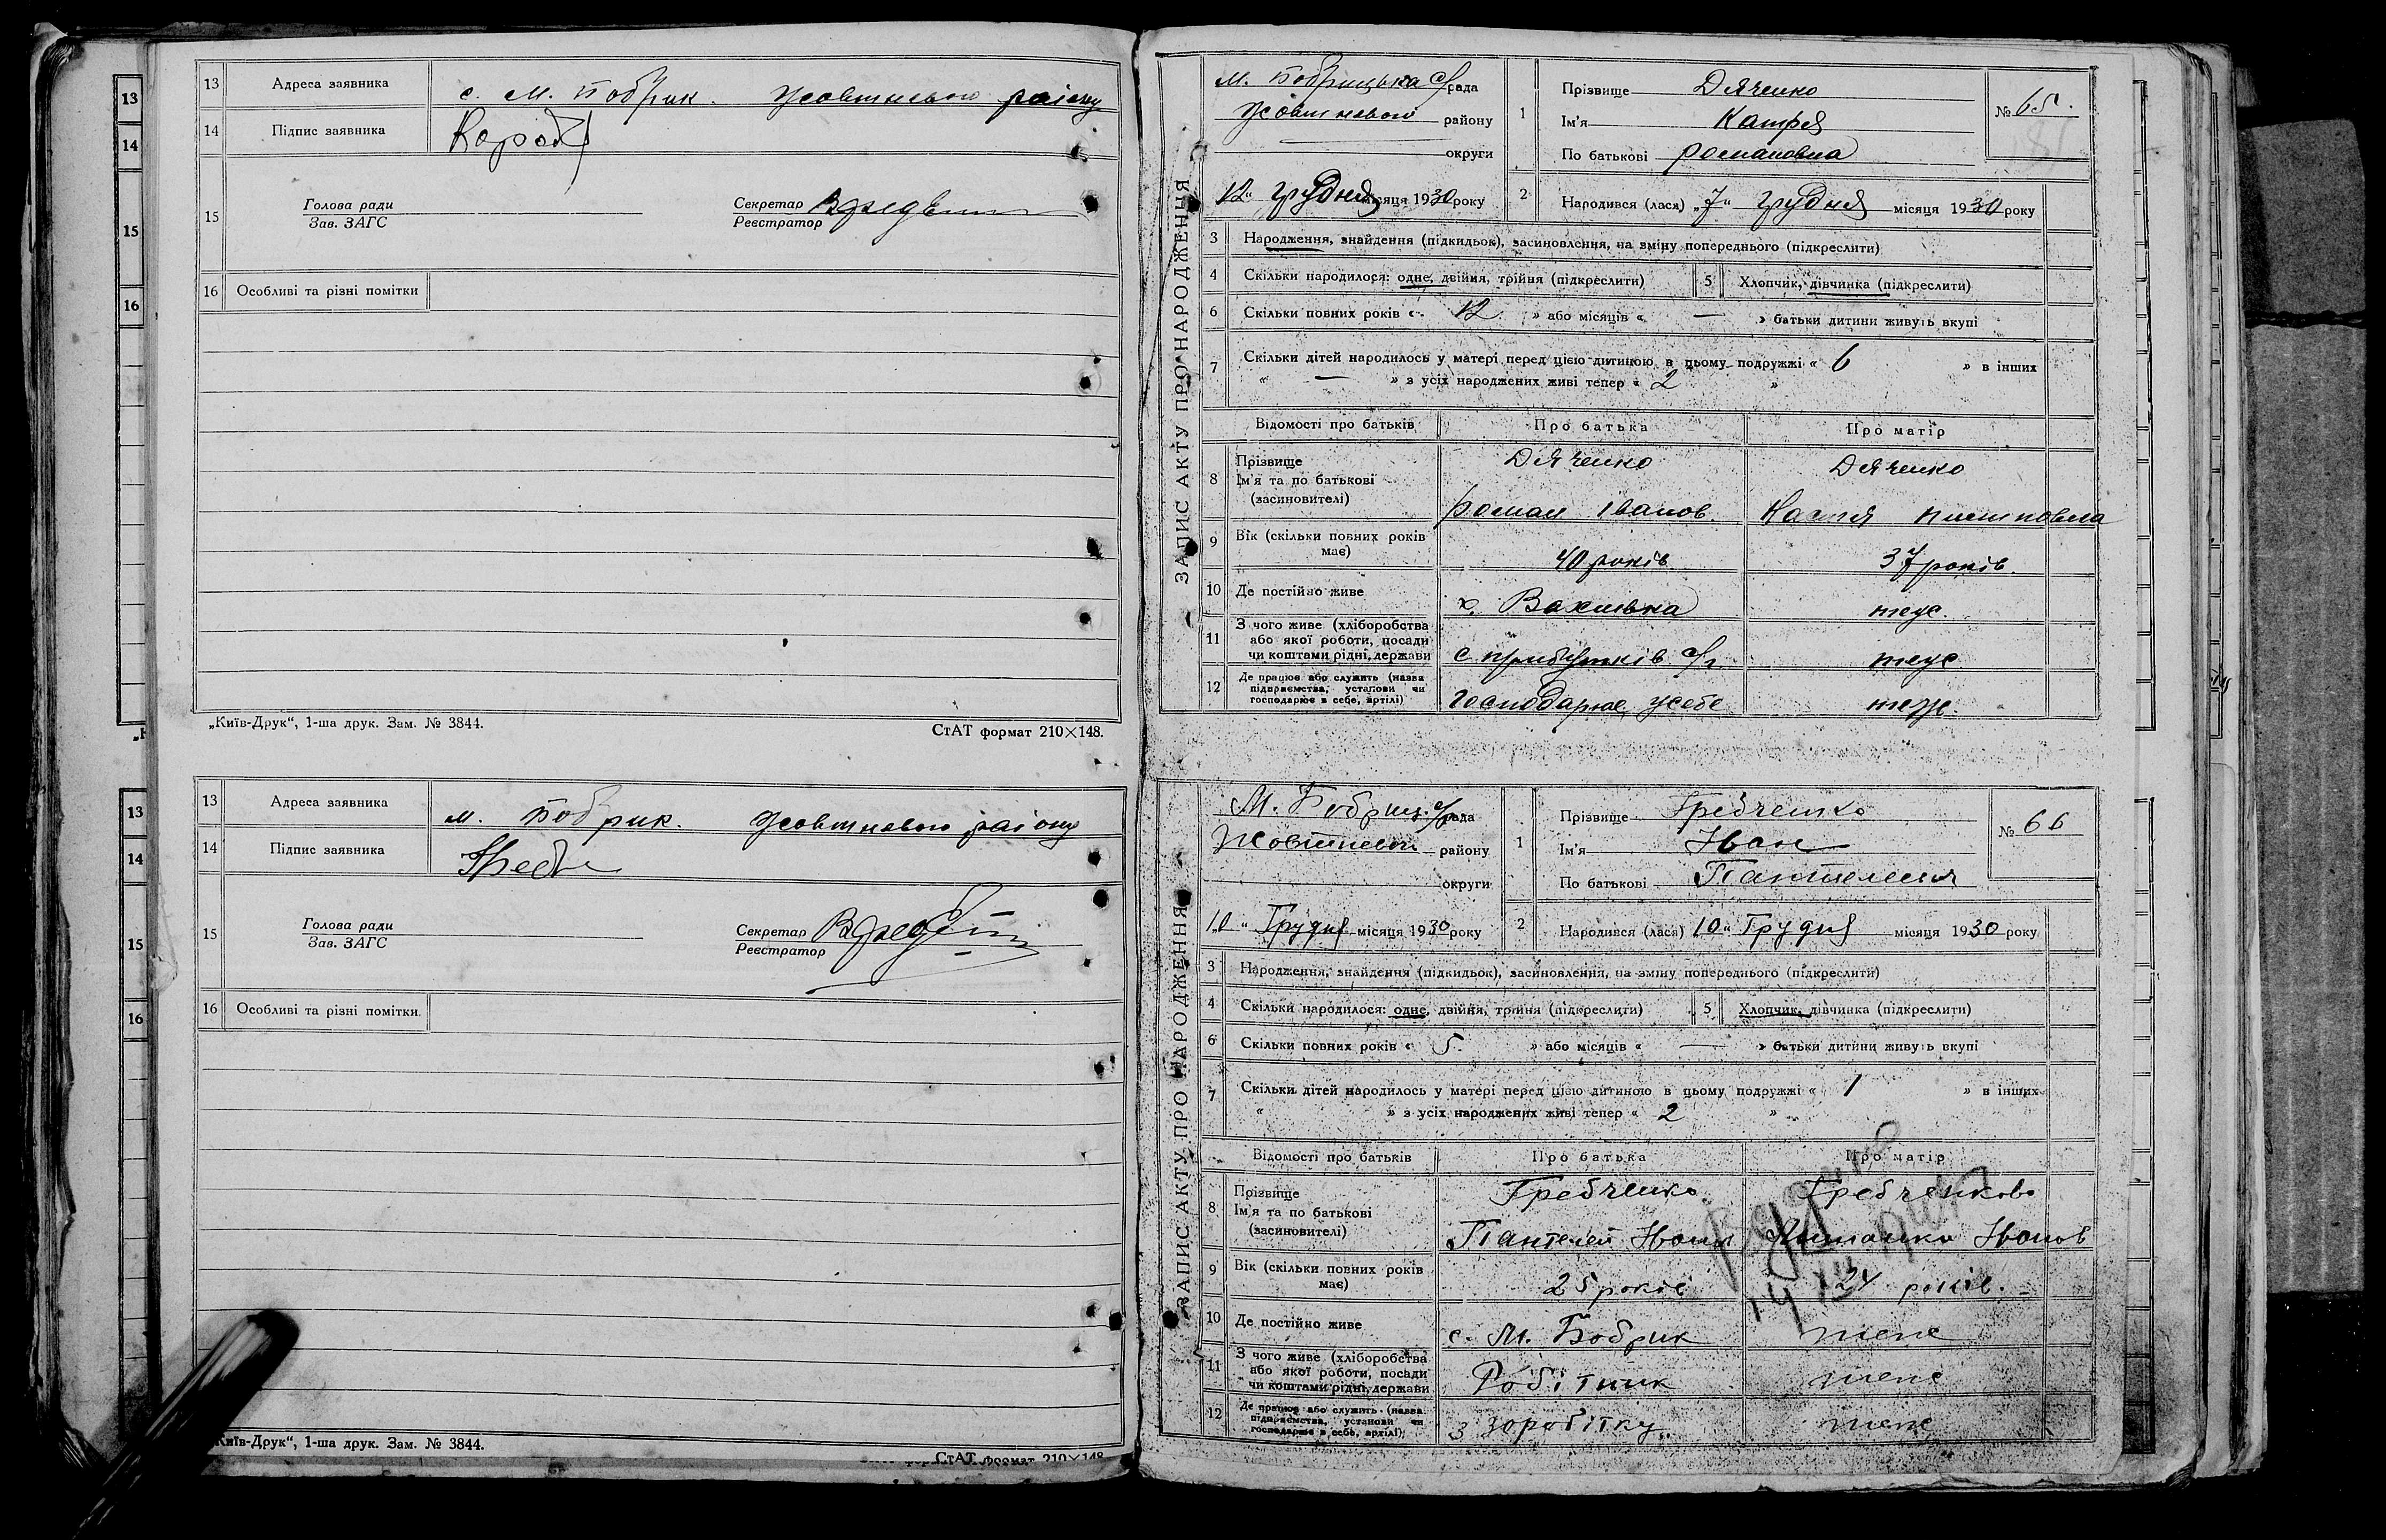 13 Адреса заявника с. М. Бобрик. Жовтневого району
14 Підпис заявника Короб
15 Голова ради
Зав. ЗАГС
Секретар
Реєстратор
16 Особливі та різні помітки
„Київ-Друк“, 1-ша друк. Зам. № 3844.
СтАТ формат 210×148.
13 Адреса заявника м. Бобрик. Жовтневого району
14 Підпис заявника Гребч
15 Голова ради
Зав. ЗАГС
Секретар
Реєстратор
16 Особливі та різні помітки
„Київ-Друк“, 1-ша друк. Зам. № 3844.
СтАТ формат 210×148
ЗАПИС АКТУ ПРО НАРОДЖЕННЯ
М. Бобрицька с/рада
Жовтневого району
округи
12 „ грудня місяця 1930 року
1 Прізвище Дяченко
Ім'я Катря
По батькові Романовна
№ 65.
2 Народився (лася) „7“ грудня місяця 1930 року
3 Народження, знайдення (підкидьок), засиновлення, на зміну попереднього (підкреслити)
4 Скільки народилося: одне, двійня, трійня (підкреслити) 5 Хлопчик, дівчинка (підкреслити)
6 Скільки повних років « 12 » або місяців « — » батьки дитини живуть вкупі
7 Скільки дітей народилось у матері перед цією дитиною в цьому подружжі « 6 » в інших
« — » з усіх народжених живі тепер « 2 »
Відомості про батьків Про батька Про матір
8 Прізвище
Ім'я та по батькові
(засиновителі)
Дяченко Дяченко
Роман Іванов. Костя
9 Вік (скільки повних років має) 40 років 37 років.
10 Де постійно живе х. теж.
11 З чого живе (хліборобства або якої роботи, посади чи коштами рідні, держави с прибутків с/г. теж
12 Де працює або служить (назва підприємства, установи чи господарює в себе, артілі) господарює усебе теж.
ЗАПИС АКТУ ПРО НАРОДЖЕННЯ
М. Бобриц. с/рада
Жовтневого району
округи
10 „ Грудня місяця 1930 року
1 Прізвище Гребченко
Ім'я Іван
По батькові Пантелеєв
№ 66
2 Народився (лася) 10 „ Грудня місяця 1930 року
3 Народження, знайдення (підкидьок), засиновлення, на зміну попереднього (підкреслити)
4 Скільки народилося: одне, двійня, трійня (підкреслити) 5 Хлопчик, дівчинка (підкреслити)
6 Скільки повних років « 5 » або місяців « — » батьки дитини живуть вкупі
7 Скільки дітей народилось у матері перед цією дитиною в цьому подружжі « 1 » в інших
« » з усіх народжених живі тепер « 2 »
Відомості про батьків Про батька Про матір
8 Прізвище
Ім'я та по батькові
(засиновителі)
Гребченко Гребченкова
Пантелей Іванов Іванов
9 Вік (скільки повних років має) 25 років 24 років.
10 Де постійно живе с. М. Бобрик теже
11 З чого живе (хліборобства або якої роботи, посади чи коштами рідні, держави Робітник теже
12 Де працює або служить (назва підприємства, установи чи господарює в себе, артілі) з заробітку теже